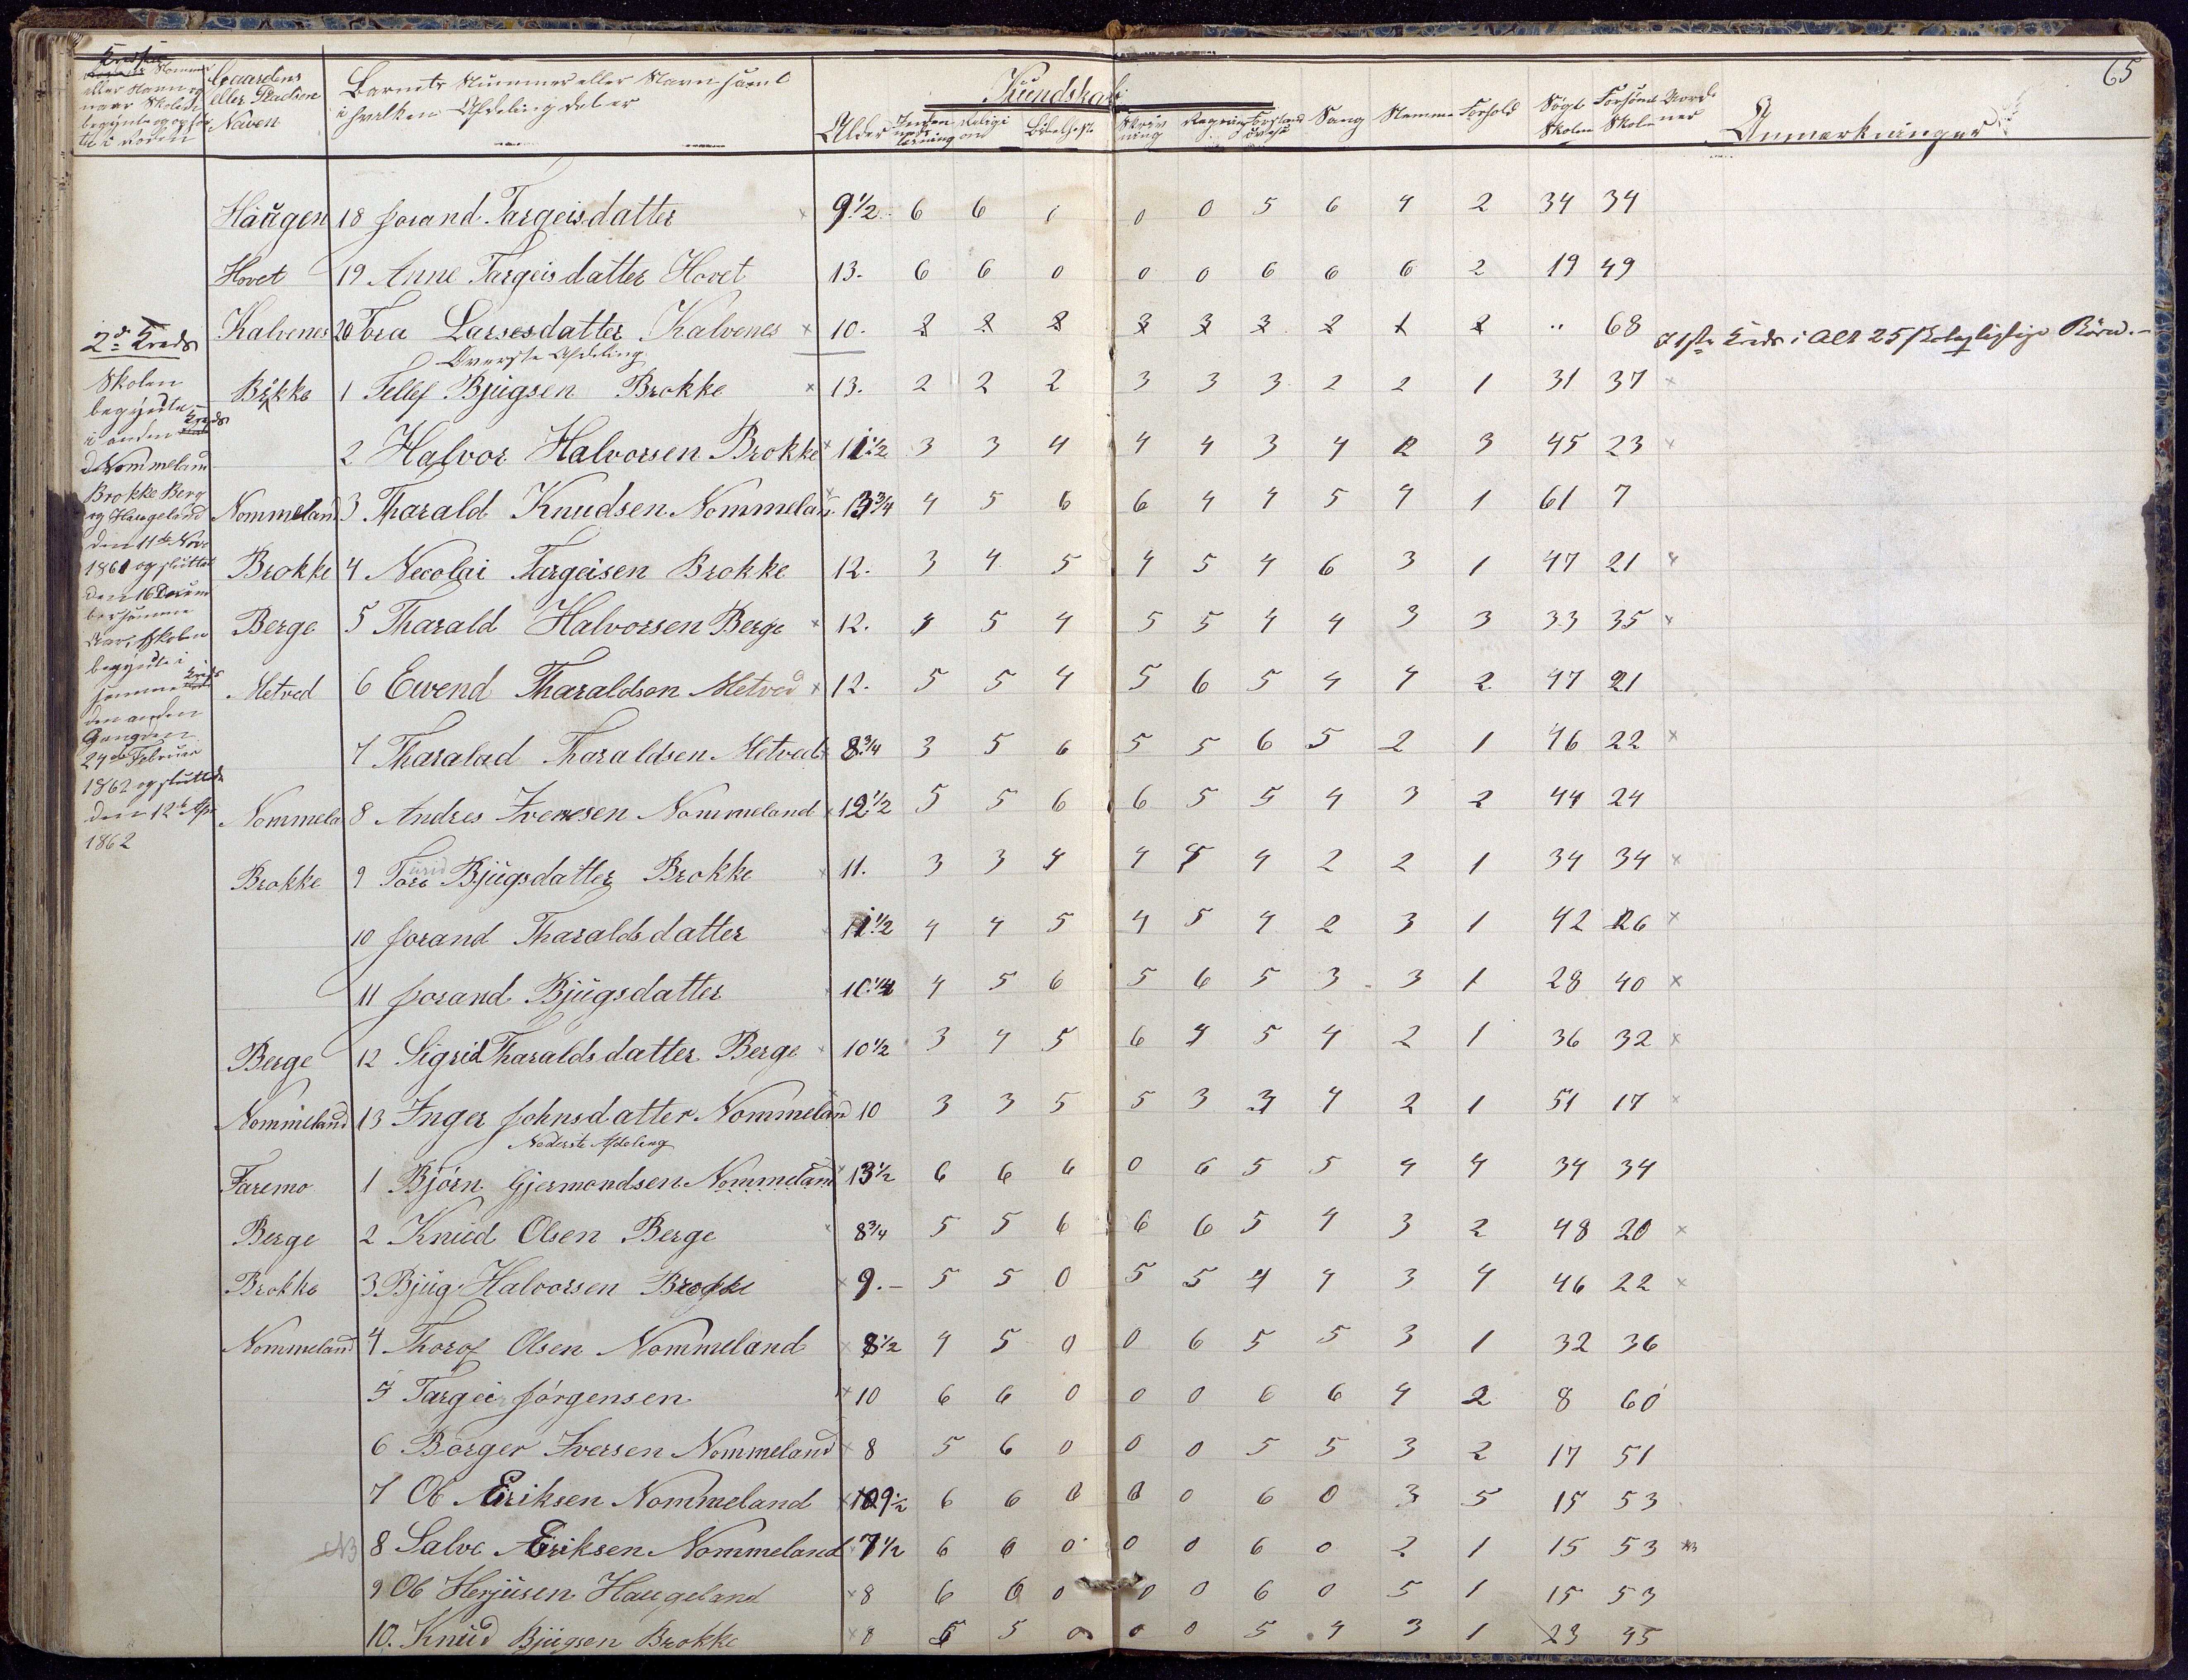 65
Kredsens Nommer
eller Navn og
naar Skolen
begynte og op hør
te i Roden
Gaardens
eller Pladsen
Naven
Barnets Nummer eller Navn samt
i hvilken Afdeling det er
Kundskab
Alder Inden ads læsning Religi on Bibelhist Skriv ning Regning Forstand øvelse Sang Nemme Forhold Søgt Skolen Forsømt Skolen Anmærkninger
Haugen 18 Jorand Targeisdatter 9 1/2 6 6 0 0 5 6 4 2 34 34
Hovet 19 Anne Targeisdatter Hovet 13. 6 6 0 0 0 6 6 6 2 19 49
Kalvenes 20 Tora Larsesdatter Kalvenes x 10. 68 I 1ste Kreds i Alt 25 skolepligtige Börn.
2den Kreds
Överste Afdeling
Brokke 1 Tellef Bjugsen Brokke x 13. 2 2 2 3 3 3 2 2 1 31 37 x
2 Halvor Halvorsen Brokke x 11 1/2 3 3 4 4 4 3 4 2 3 45 23 x
Nommeland 3 Tharald Knudsen Nommeland 13 3/4 4 5 6 6 4 4 5 4 1 61 7
Brokke 4 Necolai Targeisen Brokke 12. 3 4 5 4 5 4 6 3 1 47 21 x
Berge 5 Tharald Halvorsen Berge x 12. 4 5 4 5 5 4 4 3 3 33 35 x
Metved 6 Evend Tharaldson Metved x 12. 5 5 4 5 6 5 4 4 2 47 21
7 Tharalad Tharaldsen Metved 8 3/4 3 5 6 5 5 6 5 2 1 46 22 x
Nommela 8 Andres Ivenesen Nommeland x 12 1/2 5 5 6 6 5 5 4 3 2 44 24
Brokke 9 Tore Bjugsdatter Brokke x 11. 3 3 4 4 5 4 2 2 1 34 34 x
10 Jorand Tharaldsdatter 11 1/2 4 4 5 4 5 4 2 3 1 42 26 x
11 Jorand Bjugsdatter 10 1/4 4 5 6 5 6 5 3 3 1 28 40 x
Berge 12 Sigrid Tharaldsdatter Berge x 10 1/2 3 4 5 6 4 5 4 2 1 36 32 x
Nommeland 13 Inger Johnsdatter Nommeland 10 3 3 5 5 3 3 4 2 1 51 17 x
Nederste Afdeling
Faremo 1 Bjørn Gjermondsen Nommeland x 13 1/2 6 6 6 0 6 5 5 4 4 34 34
Berge 2 Knud Olsen Berge x 8 3/4 5 5 6 6 6 5 4 3 2 48 20 x
Brokke 3 Bjug Halvorsen Brokke x 9.- 5 5 0 5 5 4 4 3 4 46 22 x
Nommeland 4 Thorof Olsen Nommeland x 8 1/2 4 5 0 0 6 5 5 3 1 32 36
5 Targei Jörgensen x 10 6 6 0 0 0 6 6 4 2 8 60
6 Börger Iversen Nommeland x 8 5 6 0 0 0 5 5 3 2 17 51
7 Ol Eriksen Nommeland x 9 1/2 6 6 0 0 0 6 0 3 5 15 53
8 Salve Eriksen Nommeland 7 1/2 6 6 0 0 0 6 0 2 1 15 53
9 Ol Herjusen Haugeland x 8 6 6 0 0 0 6 0 5 1 15 53
10. Knud Bjugsen Brokke x 8 5 5 0 0 0 5 4 3 1 23 45
Skolen
begyndte
i anden Kreds
d Nommeland
Brokke Berg
og Haugeland
den 11te Nov
1861 og sluttet
den 16 Decem
ber samme
Aar, Skolen
begyndte i
samme Kreds
den anden
Gang den
24de Februar
1862 og sluttede
den 12te Apr
1862